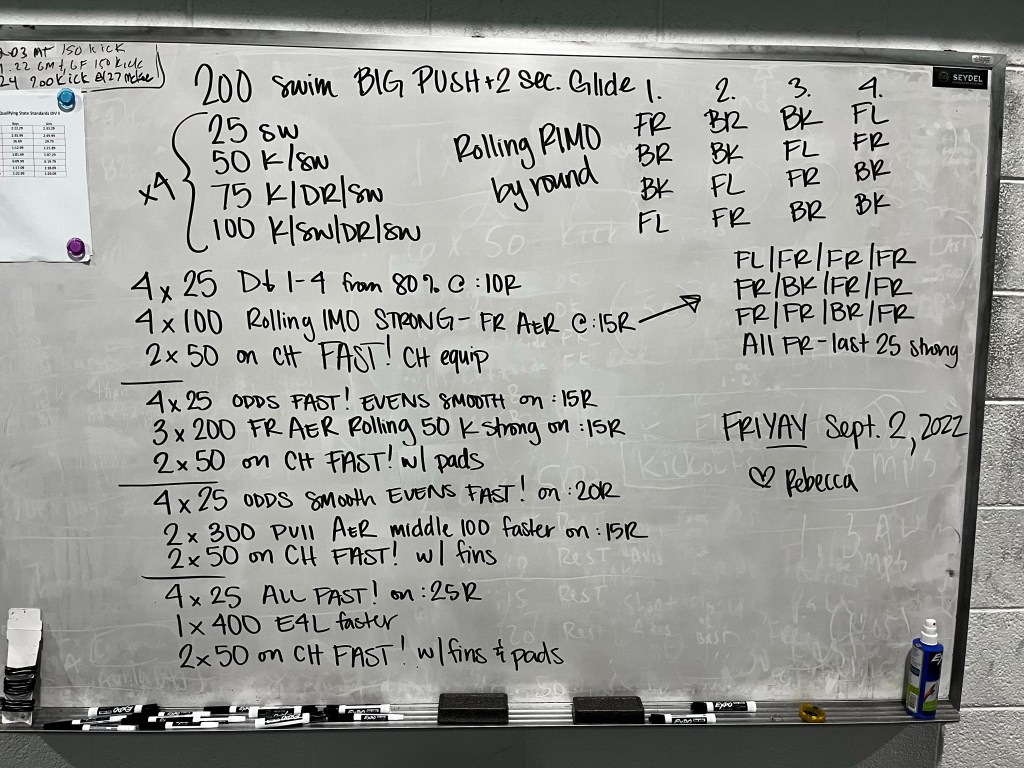 2:03 MT 150 KICK
200 swim BIG PUSH + 2 sec. Glide
x4
25 sw
50 K/sw
75 K/DR/sw
100 K/sw/DR/sw
Rolling RIMO
by round
1. 2. 3. 4.
FR BR BK FL
BR BK FL FR
BK FL FR BR
FL FR BR BK
4 x 25 D↓ 1-4 from 80% @ :10R
4 x 100 Rolling IMO STRONG - FR AER @ :15R →
2 x 50 on CH FAST! CH equip
FL/FR/FR/FR
FR/BK/FR/FR
FR/FR/BR/FR
All FR - last 25 strong
4 x 25 ODDS FAST! EVENS SMOOTH on :15R
3 x 200 FR AER Rolling 50 K strong on :15R
2 x 50 on CH FAST! w/ pads
4 x 25 ODDS smooth EVENS FAST! on :20R
2 x 300 PUll AER middle 100 faster on :15R
2 x 50 on CH FAST! w/ fins
4 x 25 ALL FAST! on :25R
1 x 400 E4L faster
2 x 50 on CH FAST! w/ fins & pads
FRIYAY Sept. 2, 2022
♡ Rebecca
SEYDEL
EXPO